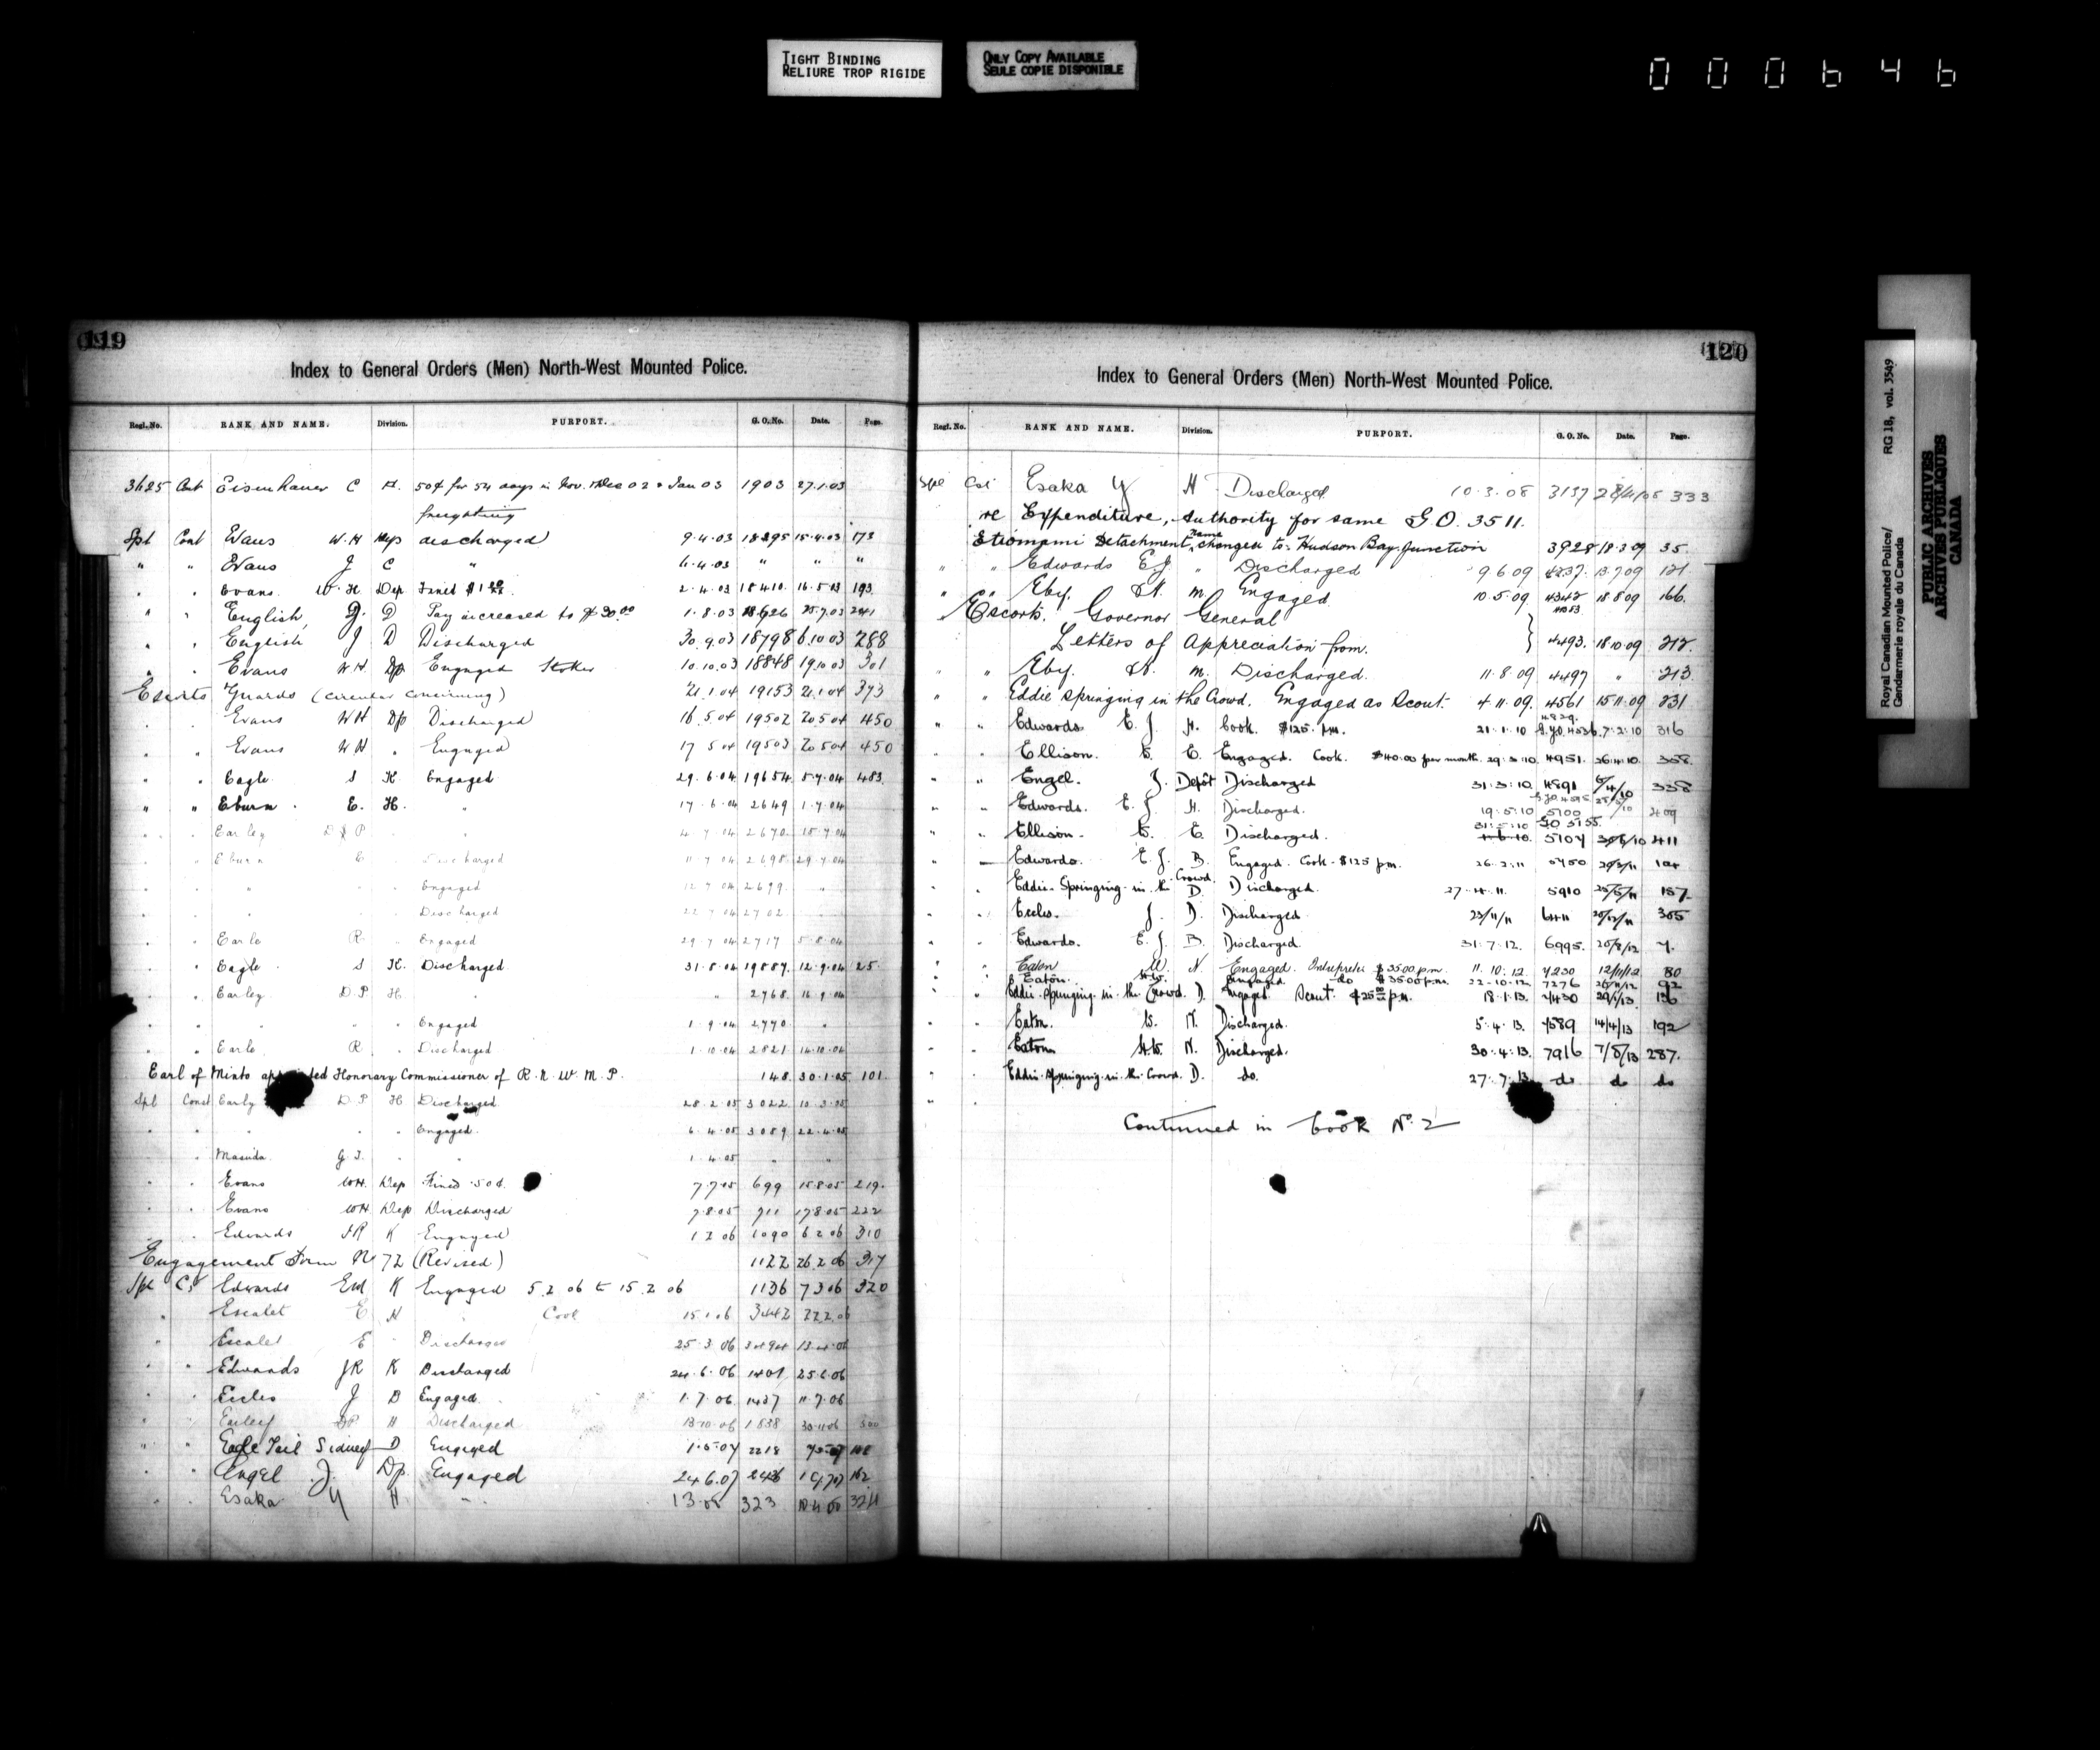 TIGHT BINDING
RELIURE TROP RIGIDE
ONLY COPY AVAILABLE
SEULE COPIE DISPONIBLE
000646
119
Index to General Orders (Men) North-West Mounted Police.
Regl. No. RANK AND NAME. Division. PURPORT. G. O. No. Date. Page.
3625 Cont Eisenhauer C H. 50¢ for 54 days in Nov. Dec 02 & Jan 03 1903 27.1.03
freighting
Spl Cont Evans W.H Dep discharged 9.4.03 18395 15.4.03 173
" " Evans J C " 6.4.03 " " "
" " Evans W.H Dep Fined $1 2.4.03 18410 16.5.03 193
" " English, J. D Pay increased to $30.00 1.8.03 18626 25.7.03 241
" " English J D Discharged 30.9.03 18798 6.10.03 288
" " Evans W.H. Dp Engaged Stoker 10.10.03 18848 19.10.03 301
Escorts Guards (circular concerning) 21.1.04 19153 21.1.04 373
" " Evans WH Dp Discharged 16.5.04 19502 20.5.04 450
" " Evans WH " Engaged 17.5.04 19503 20.5.04 450
" " Eagle S K Engaged 29.6.04 19654 5.7.04 483
" " Eburn E. H. " 17.6.04 2649 1.7.04
" " Earley D P " " 4.7.04 2670 15.7.04
" " Eburn E " Discharged 11.7.04 2698 29.7.04
" " " " Engaged 12.7.04 2699 "
" " " " Discharged 22.7.04 2702 "
" " Earle R " Engaged 29.7.04 2717 5.8.04
" " Eagle S K. Discharged 31.8.04 19887 12.9.04 25
" " Earley D.P H " " 2768 16.9.04
" " " " " Engaged 1.9.04 2770 "
" " Earle R " Discharged 1.10.04 2821 14.10.04
Earl of Minto appointed Honorary Commissioner of R.N.W.M.P. 148 30.1.05 101
Spl Const Early D P H Discharged 28.2.05 3022 10.3.05
" " " " " Engaged 6.4.05 3089 22.4.05
" " Masuda G J. " " 1.4.05 " "
" " Evans WH. Dep Fined 50¢. 7.7.05 699 15.8.05 219
" " Evans WH Dep Discharged 7.8.05 711 17.8.05 222
" " Edwards JR K Engaged 1.2.06 1090 6.2.06 310
Engagement Form No 72 (Revised) 1122 26.2.06 317
Spl Cs Edwards K Engaged 5.2.06 to 15.2.06 1136 7.3.06 320
" Escalet E H " Cook 15.1.06 3442 22.2.06
" Escalet E " Discharged 25.3.06 13.4.06
" " Edwards JR K Discharged 24.6.06 1401 25.6.06
" " Eccles J D Engaged 1.7.06 1437 11.7.06
" " Earley DP H Discharged 1838 30.11.06 300
" " Eagle Tail Sidney D Engaged 1.5.07 2218
" " Engel J. Dp. Engaged 24.6.07 162
" " Esaka Y H " 323
120
Index to General Orders (Men) North-West Mounted Police.
Regl. No. RANK AND NAME. Division. PURPORT. G. O. No. Date. Page.
Spl Cst Esaka Y H Discharged 10.3.08 3137 333
re Expenditure, Authority for same G.O. 3511.
Etiomami Detachment, name changed to: Hudson Bay Junction 3928 18.3.09 35
" " Edwards E.J. " Discharged 9.6.09 4237 13.7.09 121
" " Eby. M. Engaged 10.5.09 4342 18.8.09 166.
Escorts. Governor General
Letters of Appreciation from. 4493. 18.10.09 212.
" " Eby. M. Discharged. 11.8.09 4497 " 213
" " Eddie springing in the Crowd. Engaged as Scout. 4.11.09. 4561 15.11.09 231
" " Edwards E. J. H. Cook. $125. p.m. 21.1.10 7.2.10 316
" " Ellison. E. E. Engaged. Cook. $40.00 per month. 29.3.10. 4951. 26.4.10. 358.
" " Engel. J. Depôt Discharged 31.3.10. 4891 338
" " Edwards. E. J. H. Discharged. 19.5.10 5100 409
" " Ellison. E. E. Discharged. 31.5.10 G.O 5155. 5104 411
" Edwards. E. J. B. Engaged. Cook - $125 p.m. 26.2.11 5750
" " Eddie - Springing - in the Crowd. D. Discharged. 27.4.11. 5910 25/5/11 157.
" " Eccles. J. D. Discharged 23/11/11 6411 365
" " Edwards. E. J. B. Discharged. 31.7.12. 6995. 20/8/12 7.
" " Eaton W. N. Engaged. Interpreter $35.00 p.m. 11.10.12. 7230 12/11/12 80
" " Eaton. H.W. Engaged do $35.00 p.m. 22.10.12. 7276 26/11/12 92
" " Eddie - springing - in the Crowd. D. Engaged. Scout. $25.00 p.m. 18.1.13. 7430 29/1/13. 136
" " Eaton. W. N. Discharged. 5.4.13. 7589 14/4/13 192
" " Eaton H.W. N. Discharged. 30.4.13. 7916 7/8/13 287.
" " Eddie - springing - in the Crowd. D. do. 27.7.13. do do do
Continued in book No. 2
Royal Canadian Mounted Police/ RG 18, vol. 3549
Gendarmerie royale du Canada
PUBLIC ARCHIVES
ARCHIVES PUBLIQUES
CANADA